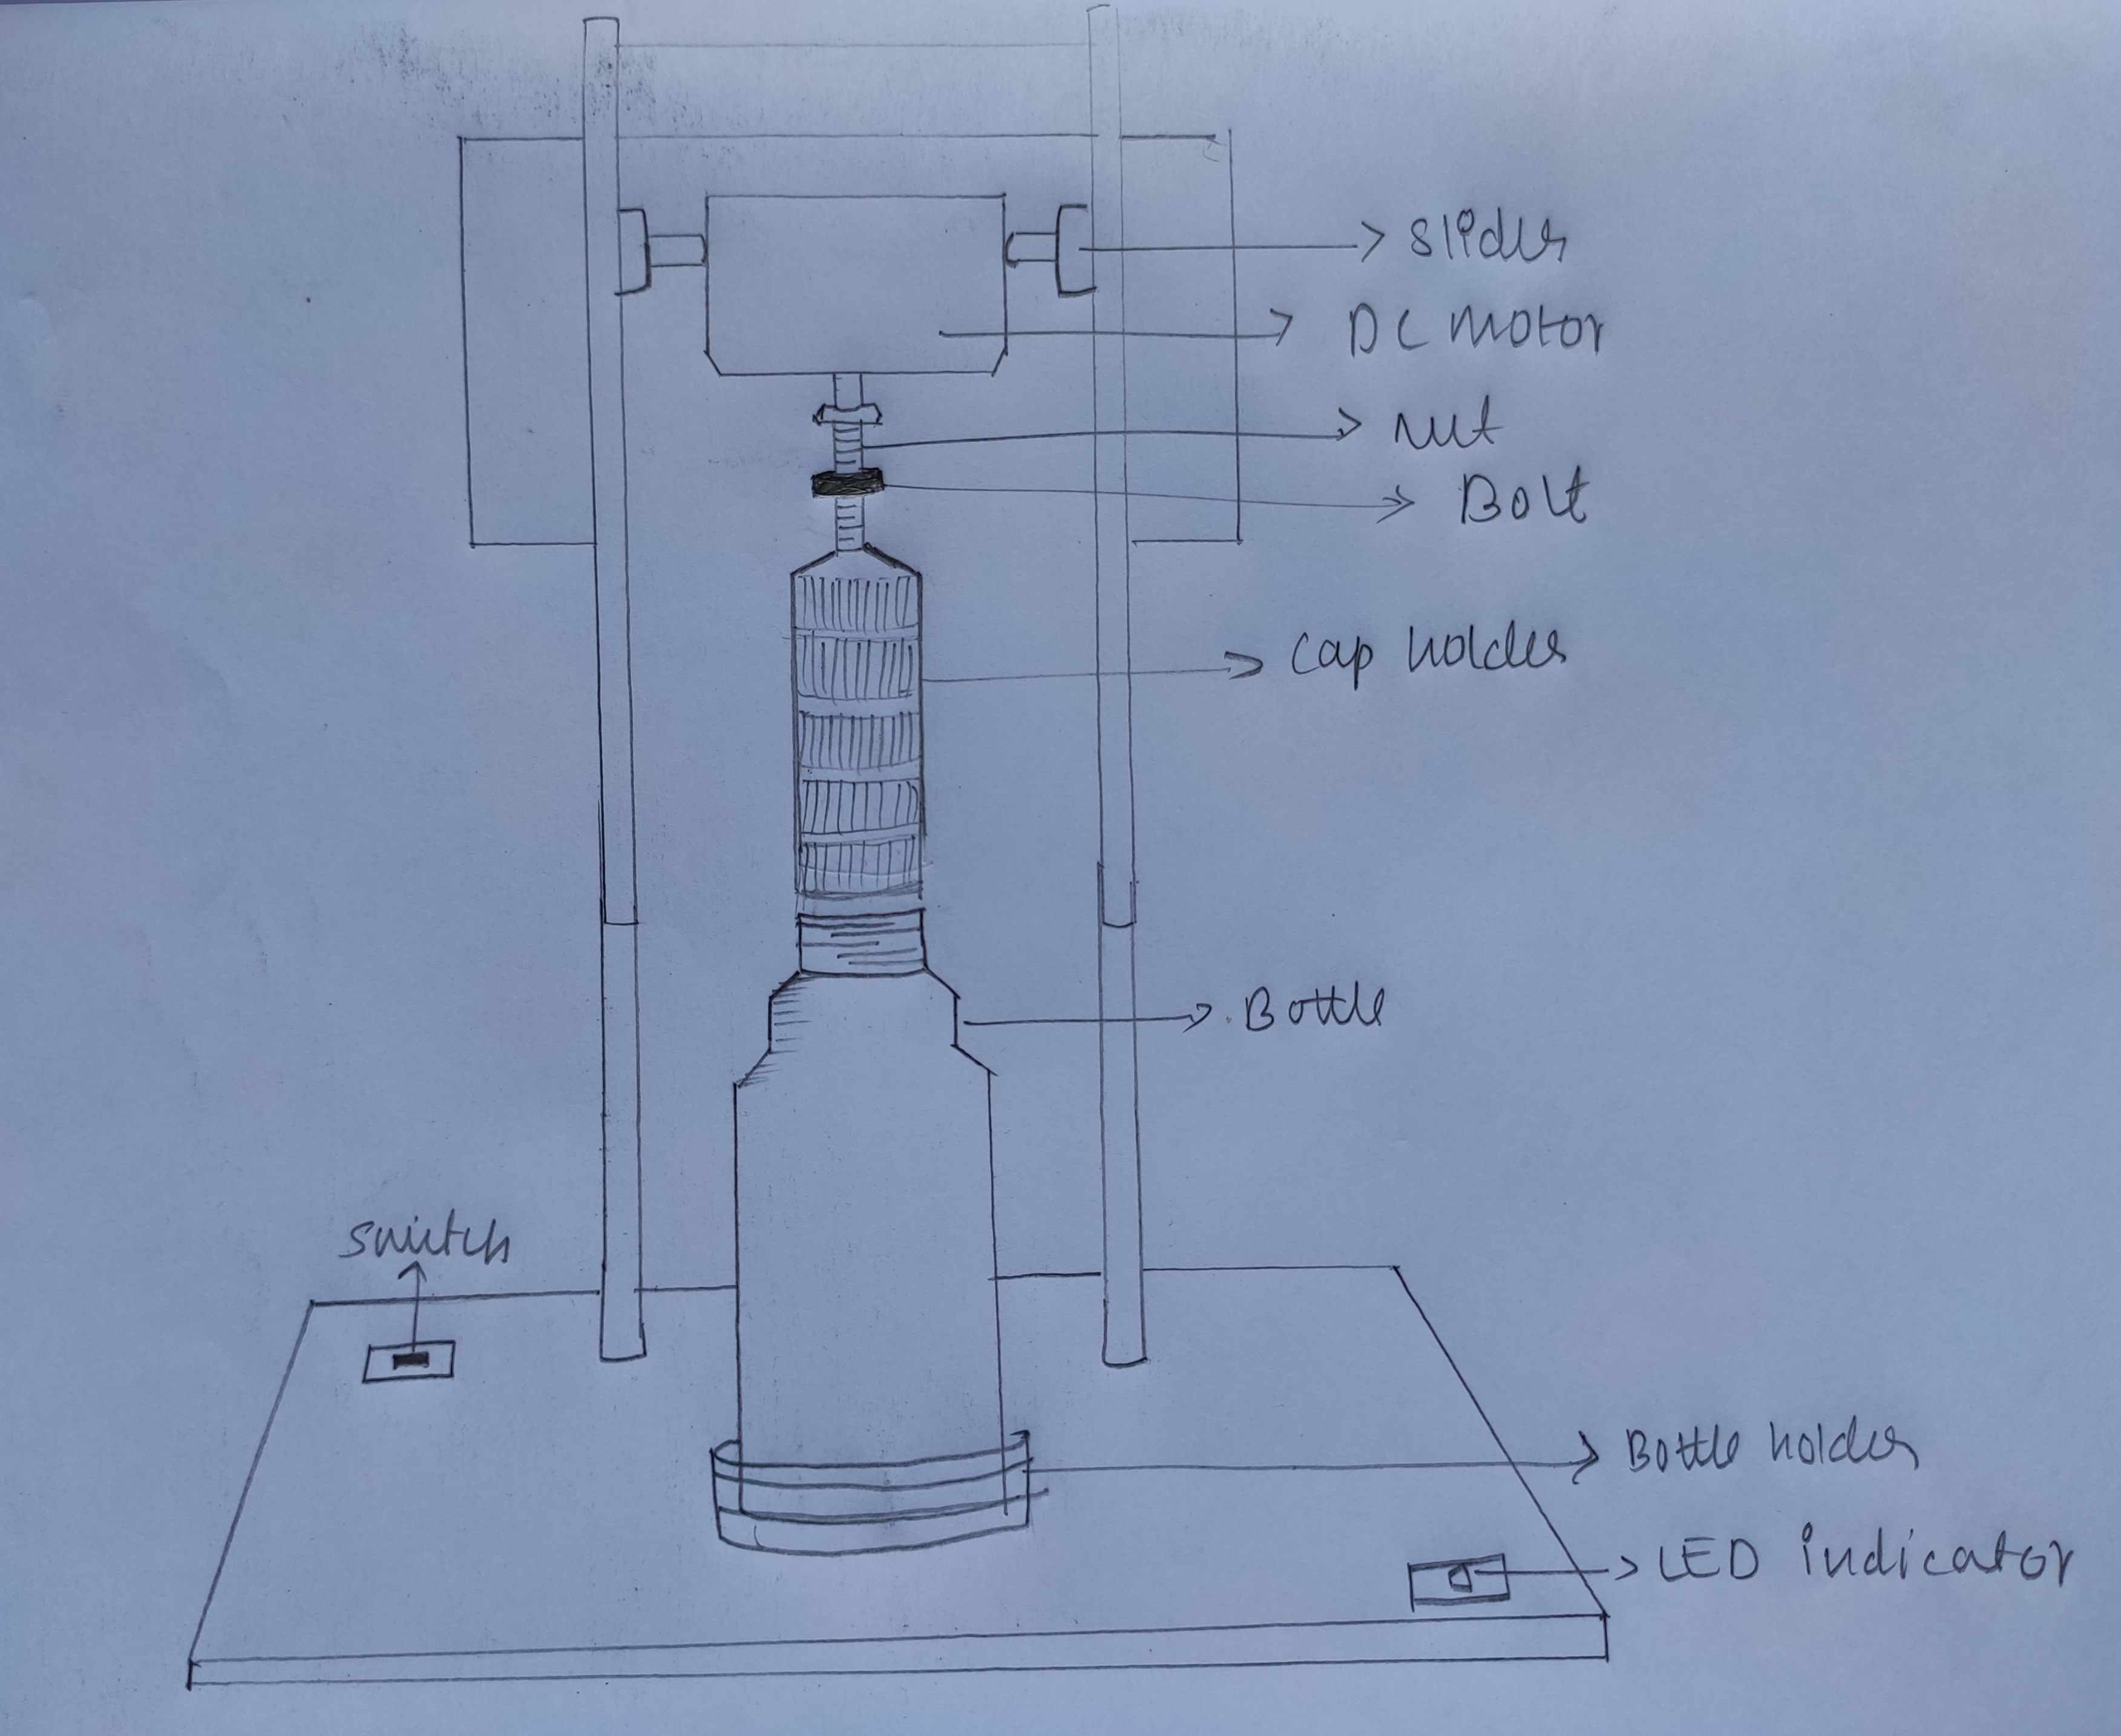 slider
DC motor
nut
Bolt
cap holder
Bottle
switch
Bottle holder
LED indicator